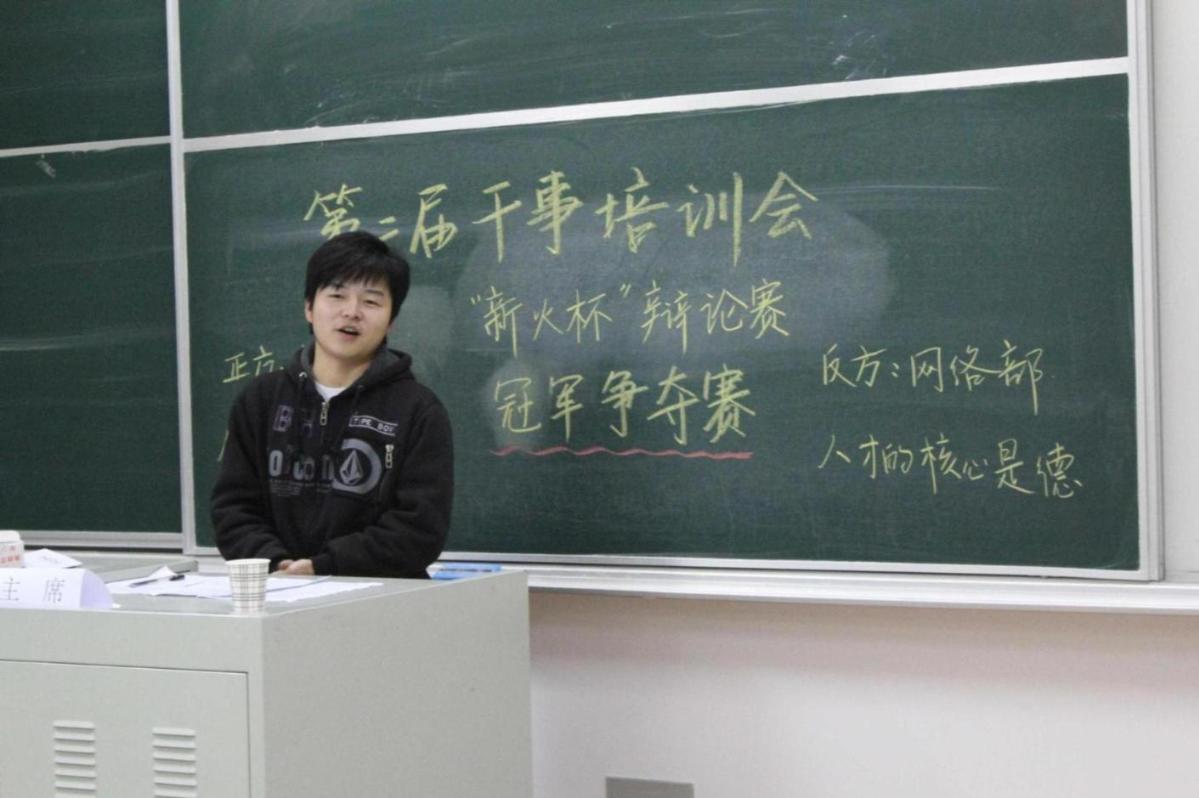 第二届干事培训会
“新火杯”辩论赛
冠军争夺赛
正方
反方:网络部
人才的核心是德
TYPE BOX
主席